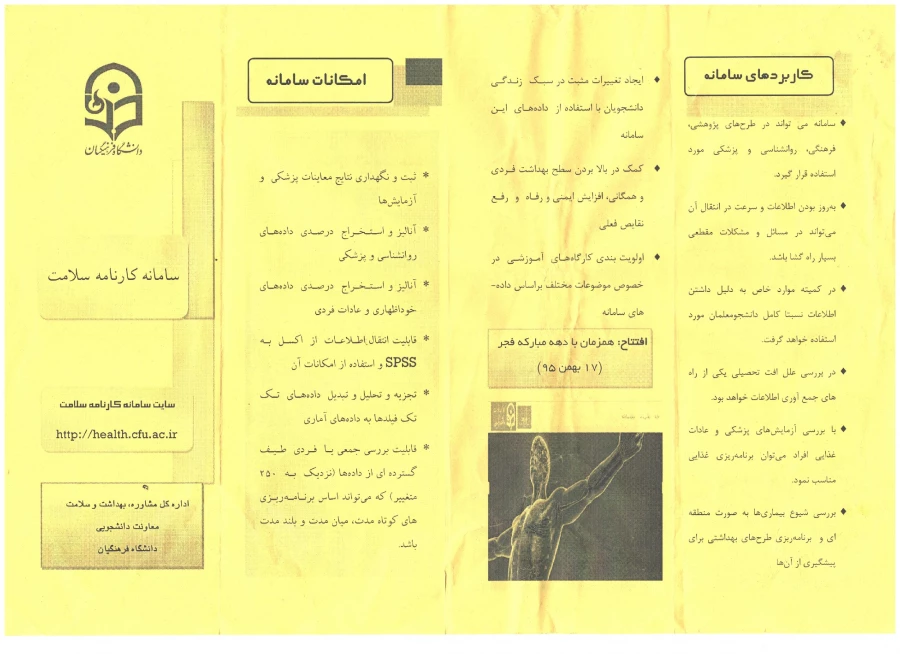 کاربردهای سامانه
♦ سامانه می تواند در طرح‌های پژوهشی،
فرهنگی، روانشناسی و پزشکی مورد
استفاده قرار گیرد.
♦ به‌روز بودن اطلاعات و سرعت در انتقال آن
می‌تواند در مسائل و مشکلات مقطعی
بسیار راه گشا باشد.
♦ در کمیته موارد خاص به دلیل داشتن
اطلاعات نسبتا کامل دانشجومعلمان مورد
استفاده خواهد گرفت.
♦ در بررسی علل افت تحصیلی یکی از راه
های جمع آوری اطلاعات خواهد بود.
♦ با بررسی آزمایش‌های پزشکی و عادات
غذایی افراد می‌توان برنامه‌ریزی غذایی
مناسب نمود.
♦ بررسی شیوع بیماری‌ها به صورت منطقه
ای و برنامه‌ریزی طرح‌های بهداشتی برای
پیشگیری از آن‌ها
♦ ایجاد تغییرات مثبت در سبک زندگی
دانشجویان با استفاده از داده‌های این
سامانه
♦ کمک در بالا بردن سطح بهداشت فردی
و همگانی، افزایش ایمنی و رفاه و رفع
نقایص فعلی
♦ اولویت بندی کارگاه‌های آموزشی در
خصوص موضوعات مختلف براساس داده-
های سامانه
افتتاح: همزمان با دهه مبارکه فجر
(۱۷ بهمن ۹۵)
امکانات سامانه
* ثبت و نگهداری نتایج معاینات پزشکی و
آزمایش‌ها
* آنالیز و استخراج درصدی داده‌های
روانشناسی و پزشکی
* آنالیز و استخراج درصدی داده‌های
خوداظهاری و عادات فردی
* قابلیت انتقال اطلاعات از اکسل به
SPSS و استفاده از امکانات آن
* تجزیه و تحلیل و تبدیل داده‌های تک
تک فیلدها به داده‌های آماری
* قابلیت بررسی جمعی یا فردی طیف
گسترده ای از داده‌ها (نزدیک به ۲۵۰
متغییر) که می‌تواند اساس برنامه‌ریزی
های کوتاه مدت، میان مدت و بلند مدت
باشد.
دانشگاه فرهنگیان
سامانه کارنامه سلامت
سایت سامانه کارنامه سلامت
http://health.cfu.ac.ir
اداره کل مشاوره، بهداشت و سلامت
معاونت دانشجویی
دانشگاه فرهنگیان